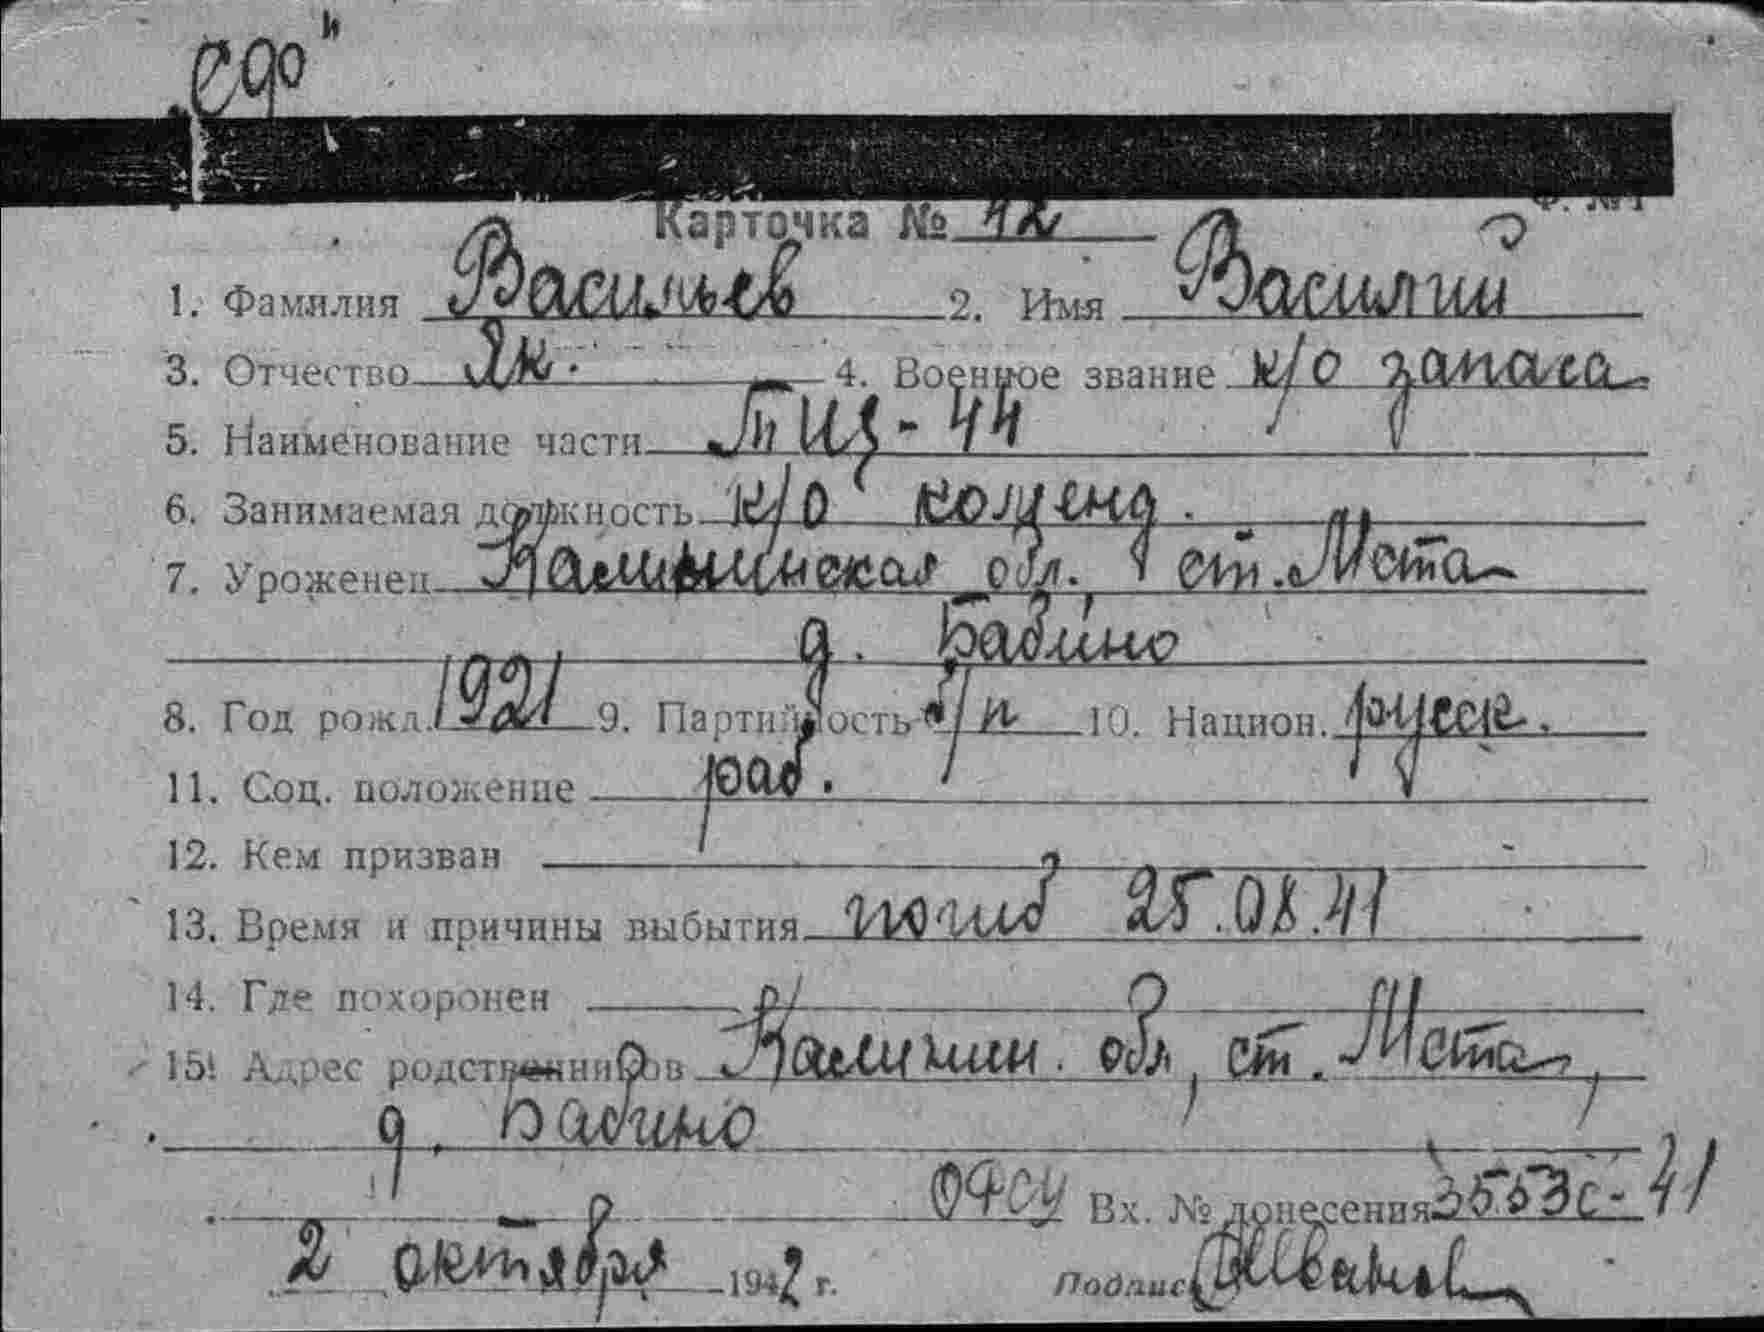 Карточка № 42
1. Фамилия Васильев 2. Имя Василий
3. Отчество Як. 4. Военное звание к/о запаса
5. Наименование части - 44
6. Занимаемая должность к/о
7. Уроженец Калининская обл. ст. Мста
д. Бабино
8. Год рожд. 1921 9. Партийность б/п 10. Национ. русск.
11. Соц. положение раб.
12. Кем призван
13. Время и причины выбытия погиб 25.08.41
14. Где похоронен
15. Адрес родственников Калинин. обл, ст. Мста,
д. Бабино
Вх. № донесения 3553с-41
2 октября 1942 г. Подпись